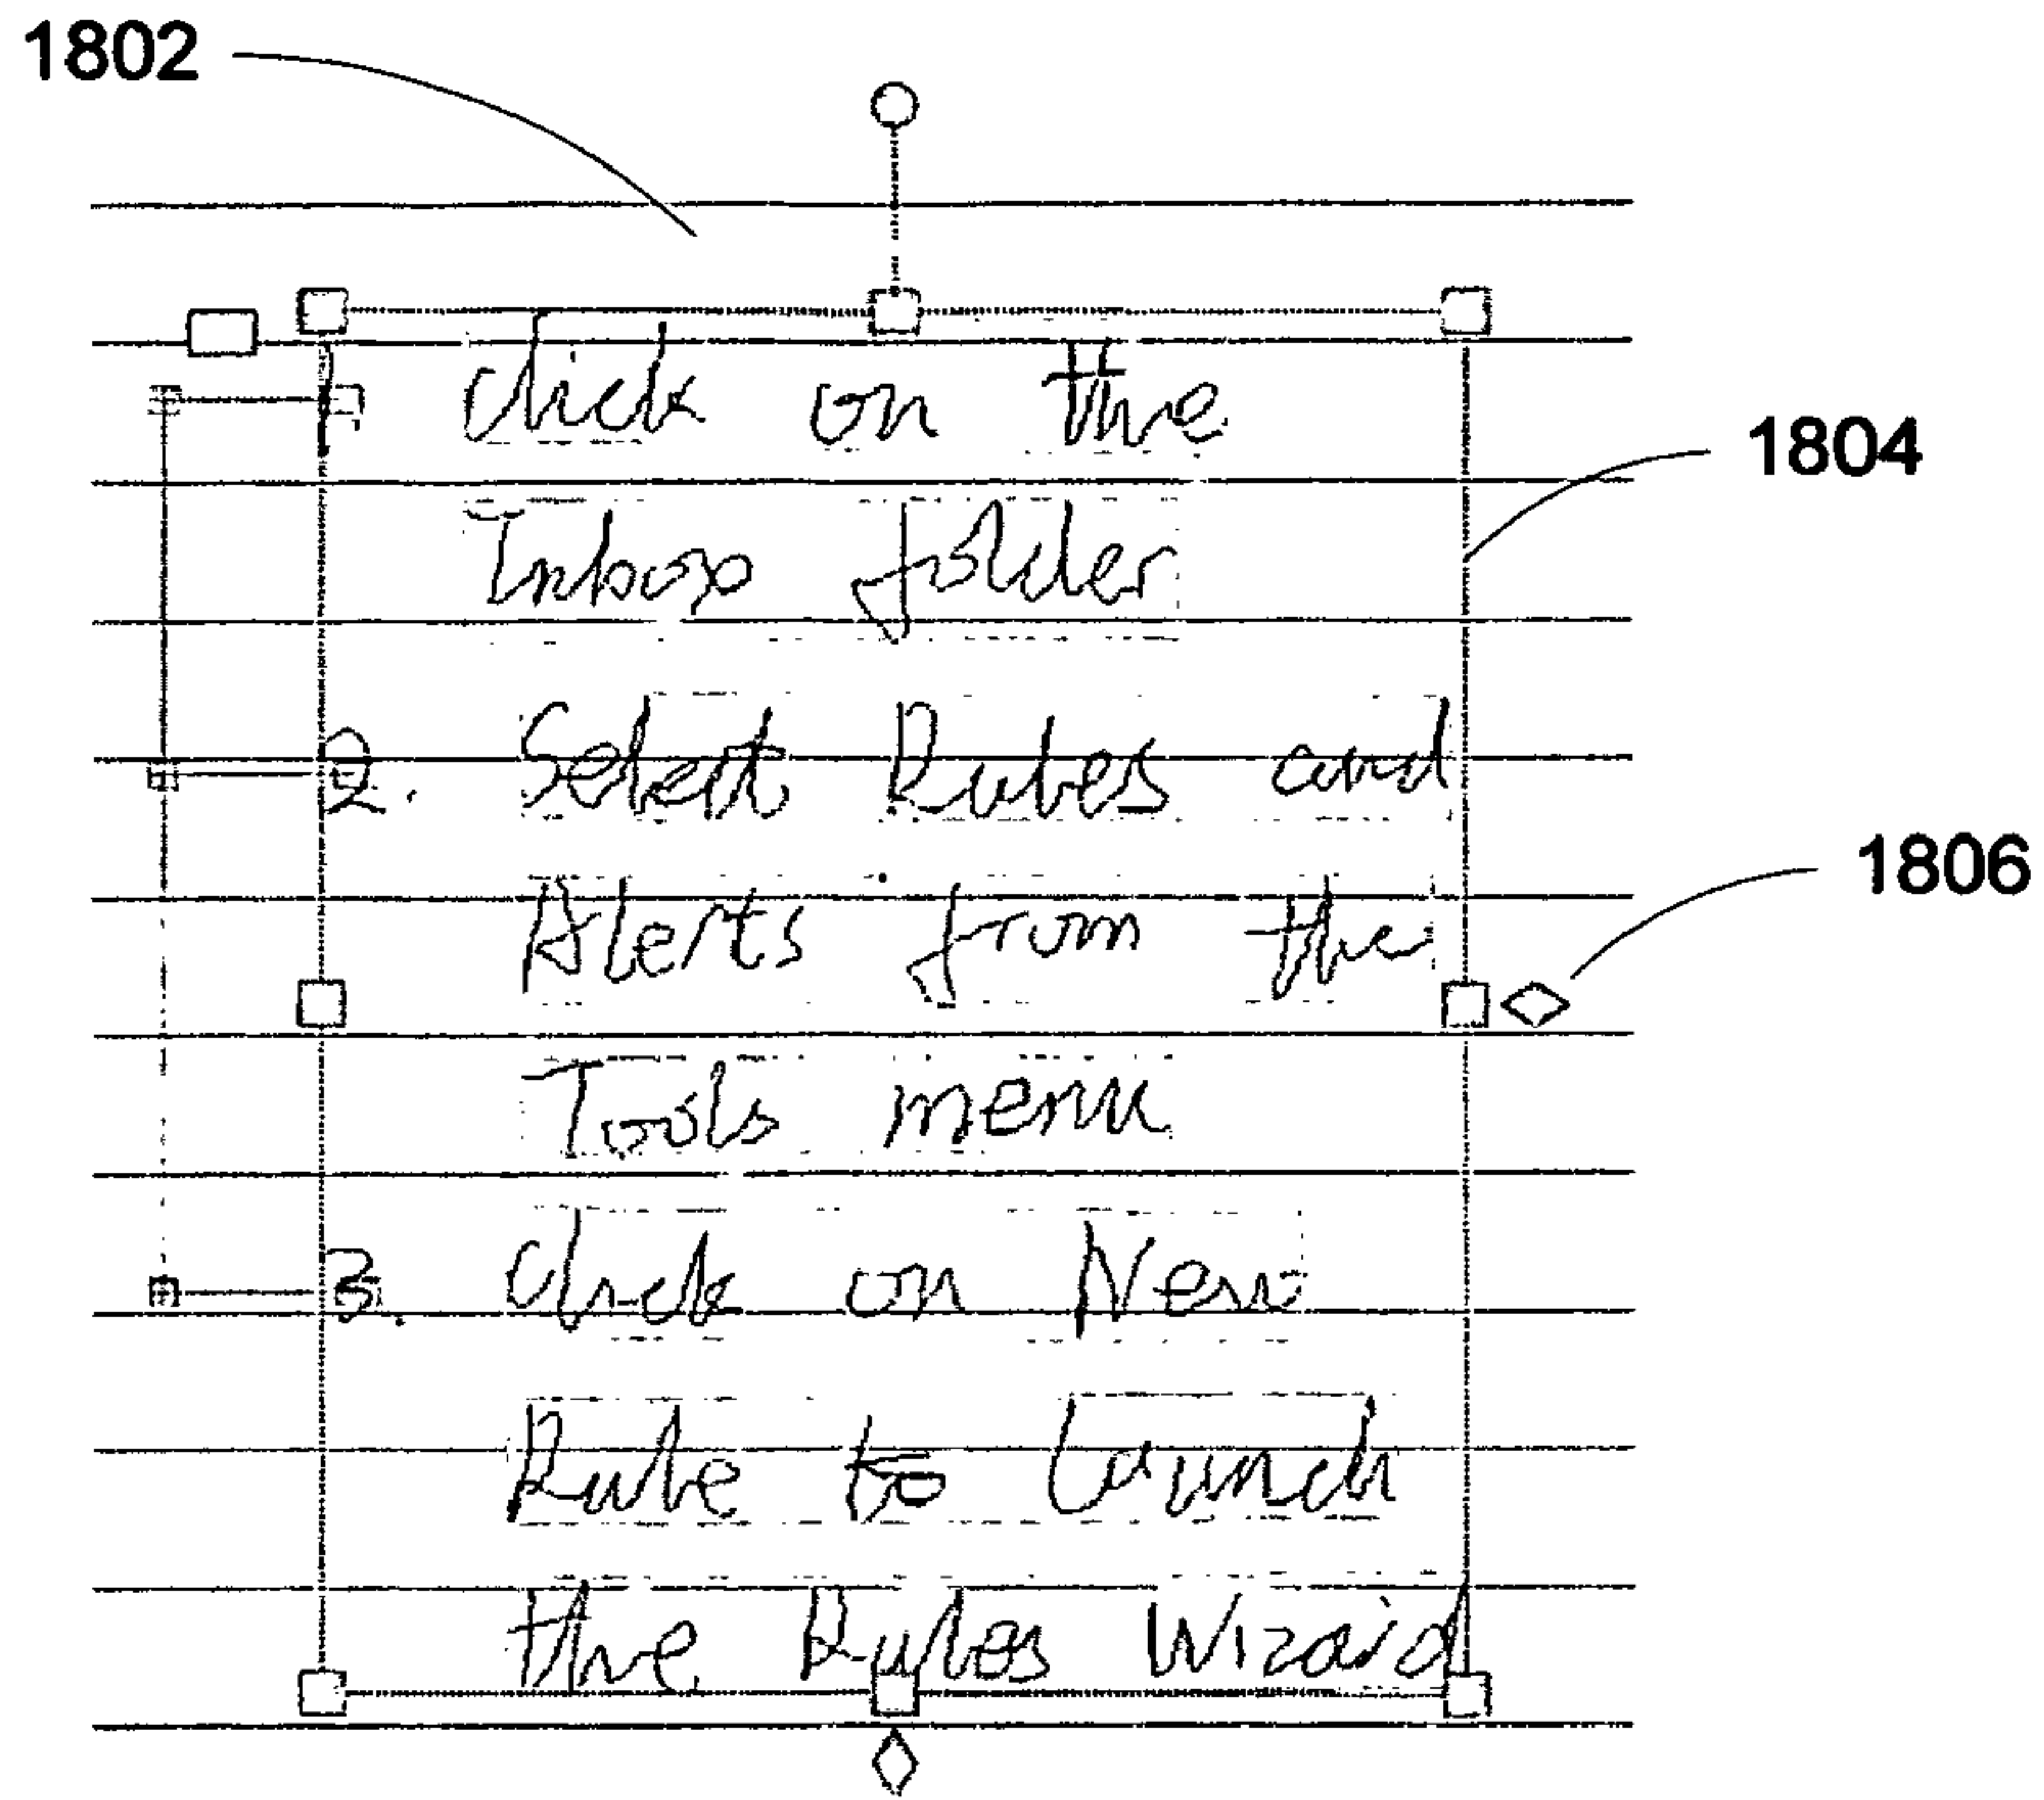 1802
1 click on the
1804
Inbox folder
2. Select Rules and
1806
Alerts from the
Tools menu
3. Click on New
Rule to launch
the Rules Wizard